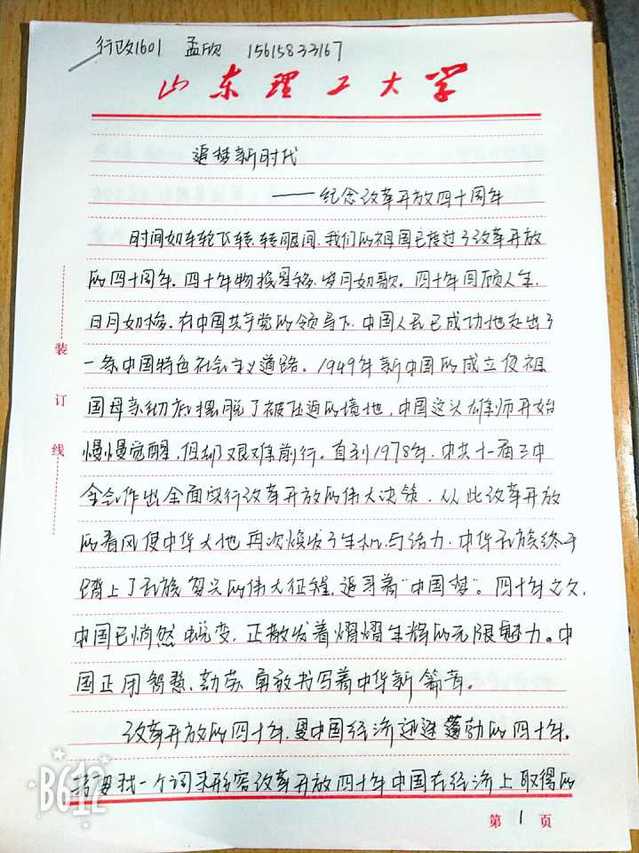 行政1601 孟欣 15615833167
山东理工大学
追梦新时代
——纪念改革开放四十周年
时间如车轮飞转,转眼间,我们的祖国已度过了改革开放
的四十周年。四十年物换星移,岁月如歌。四十年回顾人生,
日月如梭。在中国共产党的领导下,中国人民已成功地走出了
一条中国特色社会主义道路。1949年新中国的成立使祖
国母亲彻底摆脱了被压迫的境地,中国这头雄狮开始
慢慢觉醒,但却艰难前行。直到1978年,中共十一届三中
全会作出全面实行改革开放的伟大决策,从此改革开放
的春风使中华大地再次焕发了生机与活力,中华民族终于
踏上了民族复兴的伟大征程,追寻着“中国梦”。四十年之久,
中国已悄然蜕变,正散发着熠熠生辉的无限魅力。中
国正用智慧、勤劳、勇敢书写着中华新篇章。
改革开放的四十年,是中国经济迅速蓬勃的四十年。
若要找一个词来形容改革开放四十年中国在经济上取得的
装
订
线
B612
第 1 页